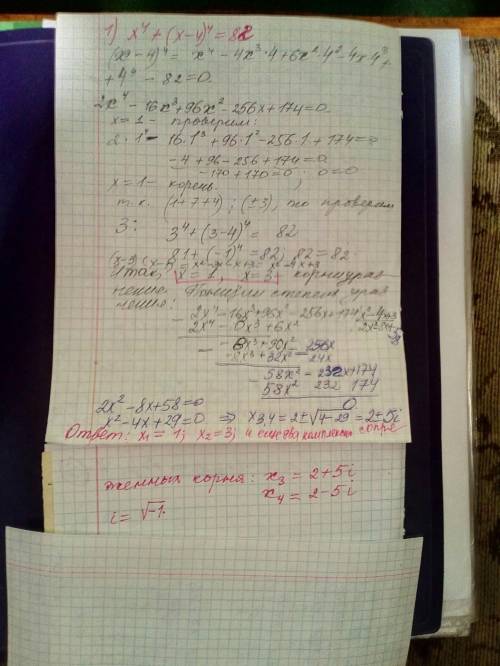 1) x⁴ + (x-4)⁴ = 82
(x-4)⁴ = x⁴ - 4x³·4 + 6x²·4² - 4x·4³ +
+ 4⁴ - 82 = 0.
2x⁴ - 16x³ + 96x² - 256x + 174 = 0.
x = 1 - проверим:
2·1⁴ - 16·1³ + 96·1² - 256·1 + 174 = 0
-4 + 96 - 256 + 174 = 0
-170 + 170 = 0; 0 = 0
x = 1 - корень.
т.к. (1+7+4); (±3), то проверим
3: 3⁴ + (3-4)⁴ = 82
81 + (-1)⁴ = 82; 82 = 82.
(x-3)(x-1) = x² - x - 3x + 3 = x² - 4x + 3
Итак, x = 1, x = 3 - корни урав
нения. Понизим степень урав
нения:
2x⁴ - 16x³ + 96x² - 256x + 174 | x² - 4x + 3
2x⁴ - 8x³ + 6x² | 2x² - 8x + 58
- 8x³ + 90x² - 256x
- 8x³ + 32x² - 24x
58x² - 232x + 174
58x² 232 174
0
2x² - 8x + 58 = 0
x² - 4x + 29 = 0 ⇒ x₃,₄ = 2 ± √4 - 29 = 2 ± 5i
Ответ: x₁ = 1; x₂ = 3; и еще два комплексн сопря
женных корня: x₃ = 2 + 5i
x₄ = 2 - 5i
i = √-1.